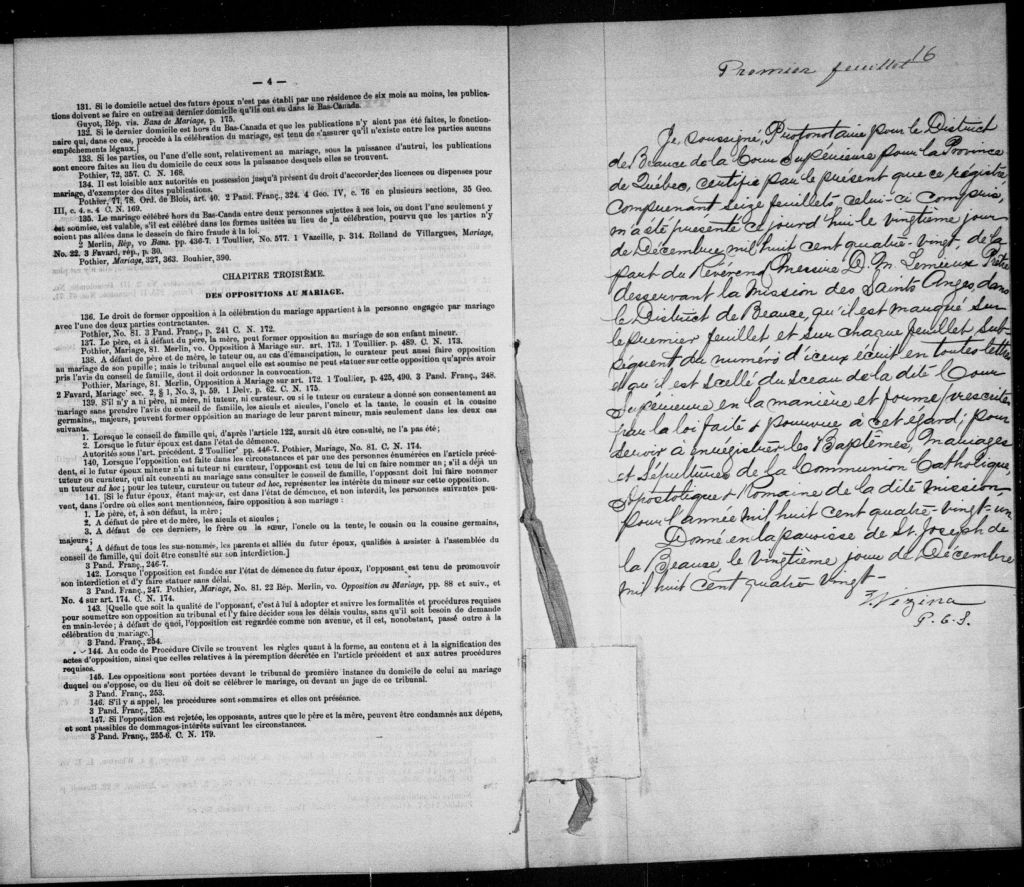 — 4 —
131. Si le domicile actuel des futurs époux n'est pas établi par une résidence de six mois au moins, les publica-
tions doivent se faire en outre au dernier domicile qu'ils ont eu dans le Bas-Canada.
Guyot, Rép. vis. Bans de Mariage, p. 175.
132. Si le dernier domicile est hors du Bas-Canada et que les publications n'y aient pas été faites, le fonction-
naire qui, dans ce cas, procède à la célébration du mariage, est tenu de s'assurer qu'il n'existe entre les parties aucuns
empêchements légaux.]
133. Si les parties, ou l'une d'elle sont, relativement au mariage, sous la puissance d'autrui, les publications
sont encore faites au lieu du domicile de ceux sous la puissance desquels elles se trouvent.
Pothier, 72, 357. C. N. 168.
134. Il est loisible aux autorités en possession jusqu'à présent du droit d'accorder des licences ou dispenses pour
mariage, d'exempter des dites publications.
Pothier, 77, 78. Ord. de Blois, art. 40. 2 Pand. Franç., 324. 4 Geo. IV, c. 76 en plusieurs sections, 35 Geo.
III, c. 4. s. 4 C. N. 169.
135. Le mariage célébré hors du Bas-Canda entre deux personnes sujettes à ses lois, ou dont l'une seulement y
est soumise, est valable, s'il est célébré dans les formes usitées au lieu de la célébration, pourvu que les parties n'y
soient pas allées dans le dessein de faire fraude à la loi.
2 Merlin, Rép, vo Bans. pp. 436-7. 1 Toullier, No. 577. 1 Vazeille, p. 314. Rolland de Villargues, Mariage,
No. 22. 3 Favard, rép., p. 30.
Pothier, Mariage, 327, 363. Bouhier, 390.
CHAPITRE TROISIÈME.
DES OPPOSITIONS AU MARIAGE.
136. Le droit de former opposition à la célébration du mariage appartient à la personne engagée par mariage
avec l'une des deux parties contractantes.
Pothier, No. 81. 3 Pand. Franç., p. 241 C. N. 172.
137. Le père, et à défaut du père, la mère, peut former opposition au mariage de son enfant mineur.
Pothier, Mariage, 81. Merlin, vo. Opposition à Mariage sur. art. 173. 1 Toullier. p. 489. C. N. 173.
138. A défaut de père et de mère, le tuteur ou, au cas d'émancipation, le curateur peut aussi faire opposition
au mariage de son pupille; mais le tribunal auquel elle est soumise ne peut statuer sur cette opposition qu'après avoir
pris l'avis du conseil de famille, dont il doit ordonner la convocation.
Pothier, Mariage, 81. Merlin, Opposition à Mariage sur art. 172. 1 Toullier, p. 425, 490. 3 Pand. Franç., 248.
2 Favard, Mariage' sec. 2, § 1, No. 3, p. 59. 1 Delv. p. 62. C. N. 175.
139. S'il n'y a ni père, ni mère, ni tuteur, ni curateur. ou si le tuteur ou curateur a donné son consentement au
mariage sans prendre l'avis du conseil de famille, les aïeuls et aïeules, l'oncle et la tante, le cousin et la cousine
germains,, majeurs, peuvent former opposition au mariage de leur parent mineur, mais seulement dans les deux cas
suivants.
1. Lorsque le conseil de famille qui, d'après l'article 122, aurait dû être consulté, ne l'a pas été;
2. Lorsque le futur époux est dans l'état de démence.
Autorités sous l'art. précédent. 2 Toullier' pp. 446-7. Pothier, Mariage, No. 81. C. N. 174.
140, Lorsque l'opposition est faite dans les circonstances et par une des personnes énumérées en l'article précé-
dent, si le futur époux mineur n'a ni tuteur ni curateur, l'opposant est tenu de lui en faire nommer un; s'il a déjà un
tuteur ou curateur, qui ait consenti au mariage sans consulter le conseil de famille, l'opposant doit lui faire nommer
un tuteur ad hoc; pour les tuteur, curateur ou tuteur ad hoc, représenter les intérêts du mineur sur cette opposition.
141. [Si le futur époux, étant majeur, est dans l'état de démence, et non interdit, les personnes suivantes peu-
vent, dans l'ordre où elles sont mentionnées, faire opposition à son mariage:
1. Le père, et, à son défaut, la mère;
2. A défaut de père et de mère, les aïeuls et aïeules;
3. A défaut de ces derniers, le frère ou la sœur, l'oncle ou la tente, le cousin ou la cousine germains,
majeurs;
4. A défaut de tous les sus-nommés, les parents et alliés du futur époux, qualifiés à assister à l'assemblée du
conseil de famille, qui doit être consulté sur son interdiction.]
3 Pand. Franç., 246-7.
142. Lorsque l'opposition est fondée sur l'état de démence du futur époux, l'opposant est tenu de promouvoir
son interdiction et d'y faire statuer sans délai.
3 Pand. Franç., 247. Pothier, Mariage, No. 81. 22 Rép. Merlin, vo. Opposition au Mariage, pp. 88 et suiv., et
No. 4 sur art. 174. C. N. 174.
143. [Quelque soit la qualité de l'opposant, c'est à lui à adopter et suivre les formalités et procédures requises
pour soumettre son opposition au tribunal et l'y faire décider sous les délais voulus, sans qu'il soit besoin de demande
en main-levée; à défaut de quoi, l'opposition est regardée comme non avenue, et il est, nonobstant, passé outre à la
célébration du mariage.]
3 Pand. Franç., 254.
144. Au code de Procédure Civile se trouvent les règles quant à la forme, au contenu et à la signification des
actes d'opposition, ainsi que celles relatives à la péremption décrétée en l'article précédent et aux autres procédures
requises.
145. Les oppositions sont portées devant le tribunal de première instance du domicile de celui au mariage
duquel ou s'oppose, ou du lieu où doit se célébrer le mariage, ou devant un juge de ce tribunal.
3 Pand. Franç., 253.
146. S'il y a appel, les procédures sont sommaires et elles ont préséance.
3 Pand. Franç., 253.
147. Si l'opposition est rejetée, les opposants, autres que le père et la mère, peuvent être condamnés aux dépens,
et sont passibles de dommages-intérêts suivant les circonstances.
3 Pand. Franç., 255-6. C. N. 179.
16
Premier feuillet
Je soussigné, Protonotaire pour le District
de Beauce de la Cour Supérieure pour la Province
de Québec, certifie par le présent que ce régistre
comprenant Seize feuillets, celui-ci compris,
m'a été présenté ce jourd'hui le vingtième jour
de Décembre mil huit cent quatre-vingt, de la
part du Révérend Messire D. M. Lemieux Prêtre
desservant la Mission des Saints Anges, dans
le District de Beauce, qu'il est marqué sur
le premier feuillet et sur chaque feuillet sub-
séquent du numéro d'iceux écrit en toutes lettres
et qu'il est scellé du sceau de la dite Cour
Supérieure en la manière et forme prescrite
par la loi faite & pourvue à cet égard, pour
servir à enrégistrer les Baptêmes, Mariages
et Sépultures de la Communion Catholique,
Apostolique & Romaine de la dite mission,
pour l'année mil huit cent quatre-vingt-un
Donné en la paroisse de St Joseph de
la Beauce, le vingtième jour de Décembre
mil huit cent quatre vingt-
Z. Vezina
P. C. S.